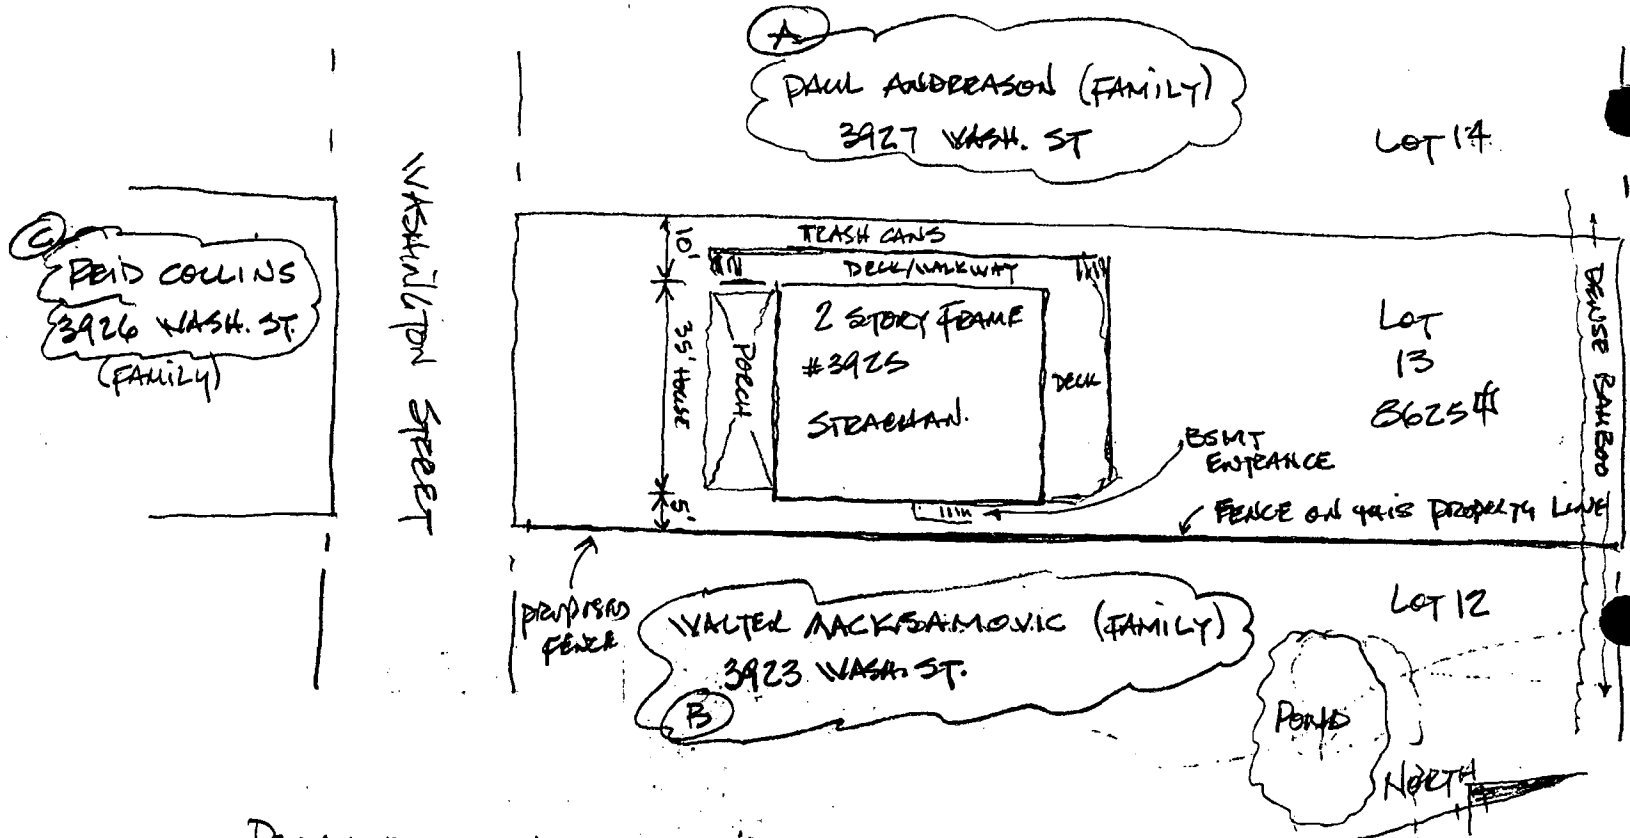 A
PAUL ANDREASON (FAMILY)
3927 WASH. ST
LOT 14
WASHINGTON STREET
C
REID COLLINS
3926 WASH. ST.
(FAMILY)
10'
TRASH CANS
DECK/WALKWAY
35' HOUSE
PORCH
2 STORY FRAME
#3925
STRACHAN.
DECK
LOT
13
8625
DENSE BAMBOO
BSMT
ENTRANCE
5'
FENCE ON THIS PROPERTY LINE
PROPOSED
FENCE
WALTER (FAMILY)
3923 WASH. ST.
B
LOT 12
POND
NORTH